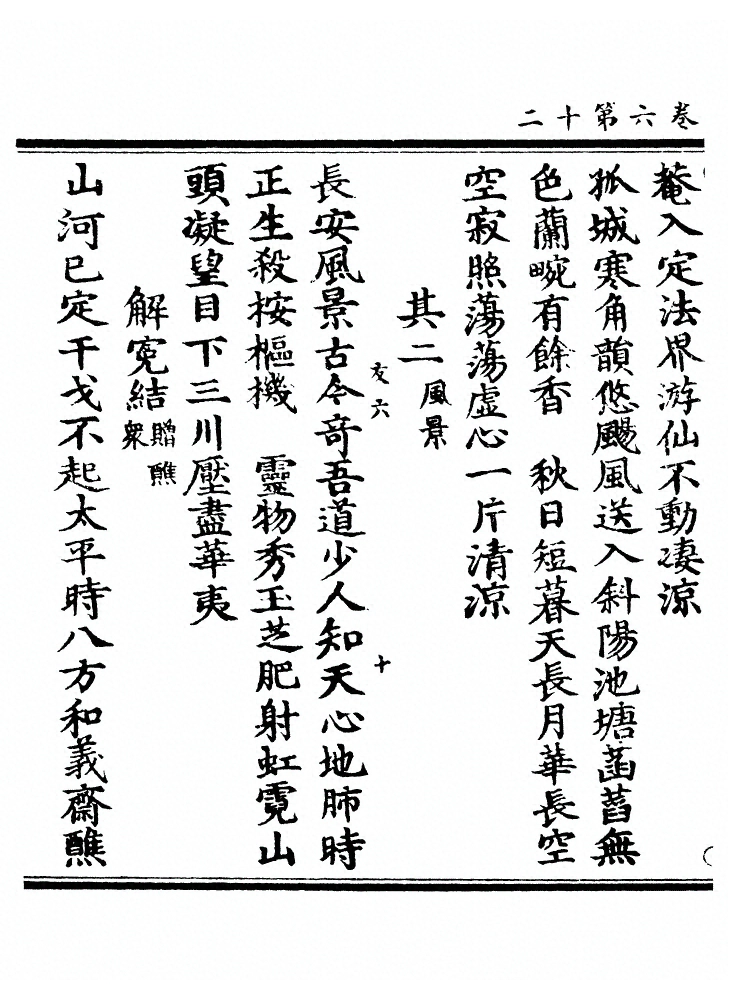 卷六第十二
菴入定法界游仙不動凄涼
孤城寒角韻悠颺風送入斜陽池塘菡萏無
色蘭畹有餘香　秋日短暮天長月華長空
空寂照蕩蕩虛心一片清涼
其二風景
長安風景古今奇吾道少人知天心地肺時
友六
十
正生殺按樞機　靈物秀玉芝肥射虹霓山
頭凝望目下三川壓盡華夷
解寃結贈醮衆
山河已定干戈不起太平時八方和義齋醮